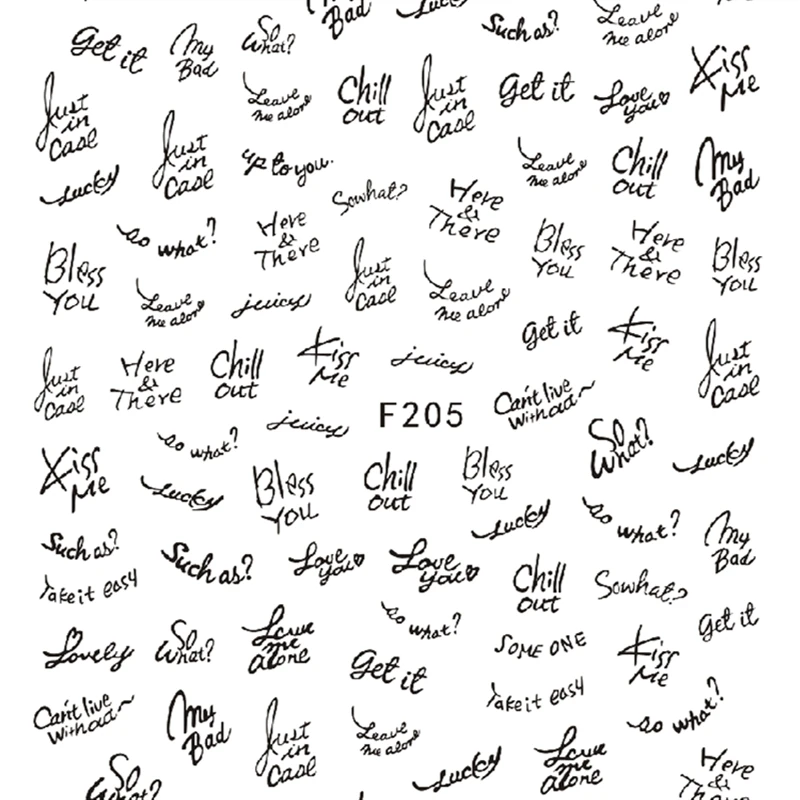 My
Bad
Lucky
Get it
My
Bad
So
What?
Such as?
Leave
me alone
Just
in
Case
Leave
me alone
Chill
out
Just
in
Case
Get it
Love
you
Kiss
Me
Lucky
Just
in
Case
up to you.
Leave
me alone
Chill
out
My
Bad
So what?
Here
&
There
Bless
You
So what?
Here
&
There
Just
in
Case
Bless
You
Here
&
There
Bless
You
Leave
me alone
juicy
Leave
me alone
Just
in
Case
Here
&
There
Chill
out
Kiss
Me
juicy
Get it
Kiss
Me
Just
in
Case
juicy
F205
Can't live
without~
Kiss
Me
So what?
Lucky
Bless
You
Chill
out
Bless
You
So
What?
Lucky
Such as?
Such as?
Love
you
Love
you
Lucky
So what?
My
Bad
Take it easy
Chill
out
So what?
Lovely
So
What?
Leave
me
alone
So what?
Get it
SOME ONE
Kiss
Me
Get it
Can't live
without~
My
Bad
Just
in
Case
Leave
me alone
Take it easy
So what?
So
What?
Lucky
Leave
me
alone
Here
&
There